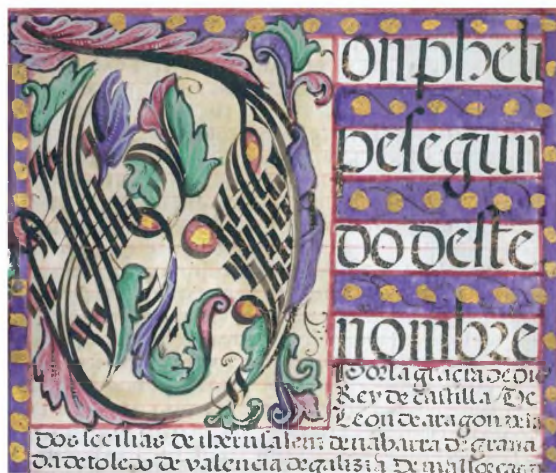 Don pheli
pe segun
do deste
nombre
Por la gracia de Dio
Rey de castilla / De
Leon de aragon
Dos secilias de iherusalem de nabarra de grana
da de toledo de valencia de galizia De mallorcas